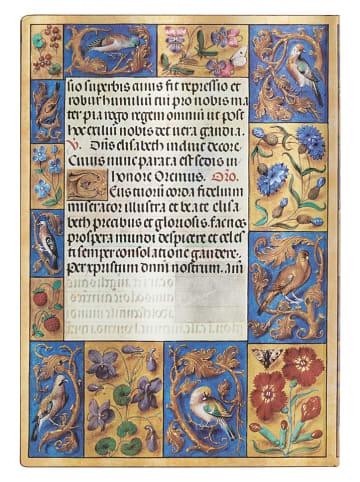 sio superbis cuius fit repressio et
robur humiliū tu pro nobis ma
ter pia rogo regem omniū ut post
hoc exiliū nobis det vera gaudia.
V. Dñs elisabeth induit decore.
Cuius nunc parata est sedis in
honore Oremus. Oro.
Deus tuorū corda fidelium
miserator illustra et beate elisa
beth precibus et gloriosis. fac nos
prospera mundi despicere et celes
ti semper consolatione gaudere.
per xpristum dnm nostrum. am